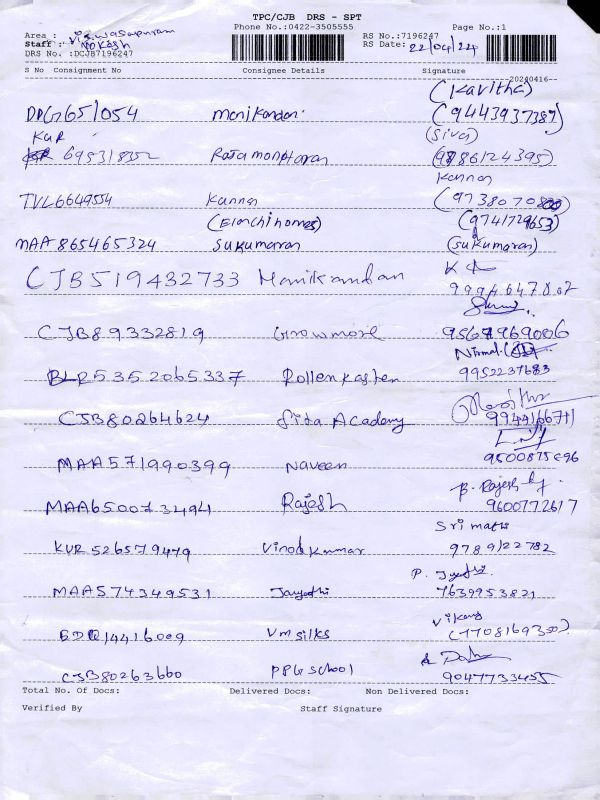 TPC/CJB DRS - SPT
Phone No.:0422-3505555 Page No.:1
Area : Viswasapuram RS No.:7196247
Staff : Nokash RS Date: 22/04/24
DRS No. :DCJB7196247
S No Consignment No Consignee Details Signature
20240416--
(Kavitha)
DDG651054 manikandan (9443937387)
KUR (Siva)
695318352 Rajamanoharan (9786124395)
Kannan
TVL6649554 Kannan (9738070800)
(Elanchi homes) (9741729653)
MAA 865465324 Sukumaran (Sukumaran)
CJB519432733 Manikandan
9994647802
CJB89332819 Growmore 9567969006
Nirmal
BLR5352065337 Rollenkasten 9952237683
CJB80264624 Sita Academy 9944166711
MAA571990399 Naveen 9500875696
B. Rajesh
MAA650073494 Rajesh 9600772617
Srimathi
KUR 526579479 Vinodkumar 9789122782
P. Jyothi
MAA574349531 Jayothi 7639953821
Vikas
EDD14416009 Vm silks (7708169350)
CJB80263660 PPG School 9047733455
Total No. Of Docs: Delivered Docs: Non Delivered Docs:
Verified By Staff Signature